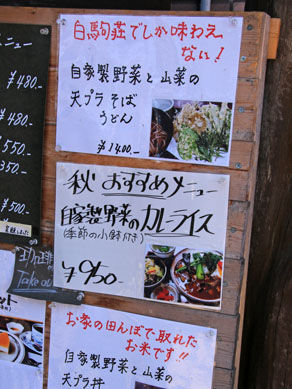 白駒荘でしか味わえ
ない!
自家製野菜と山菜の
天プラそば
うどん
¥1400-
秋 おすすめメニュー
自家製野菜のカレーライス
(季節の小鉢付き)
¥950-
お家の田んぼで取れた
お米です!!
自家製野菜と山菜の
天プラ丼
ニュー
¥480-
¥480-
550-
¥500-
Take ou
ット